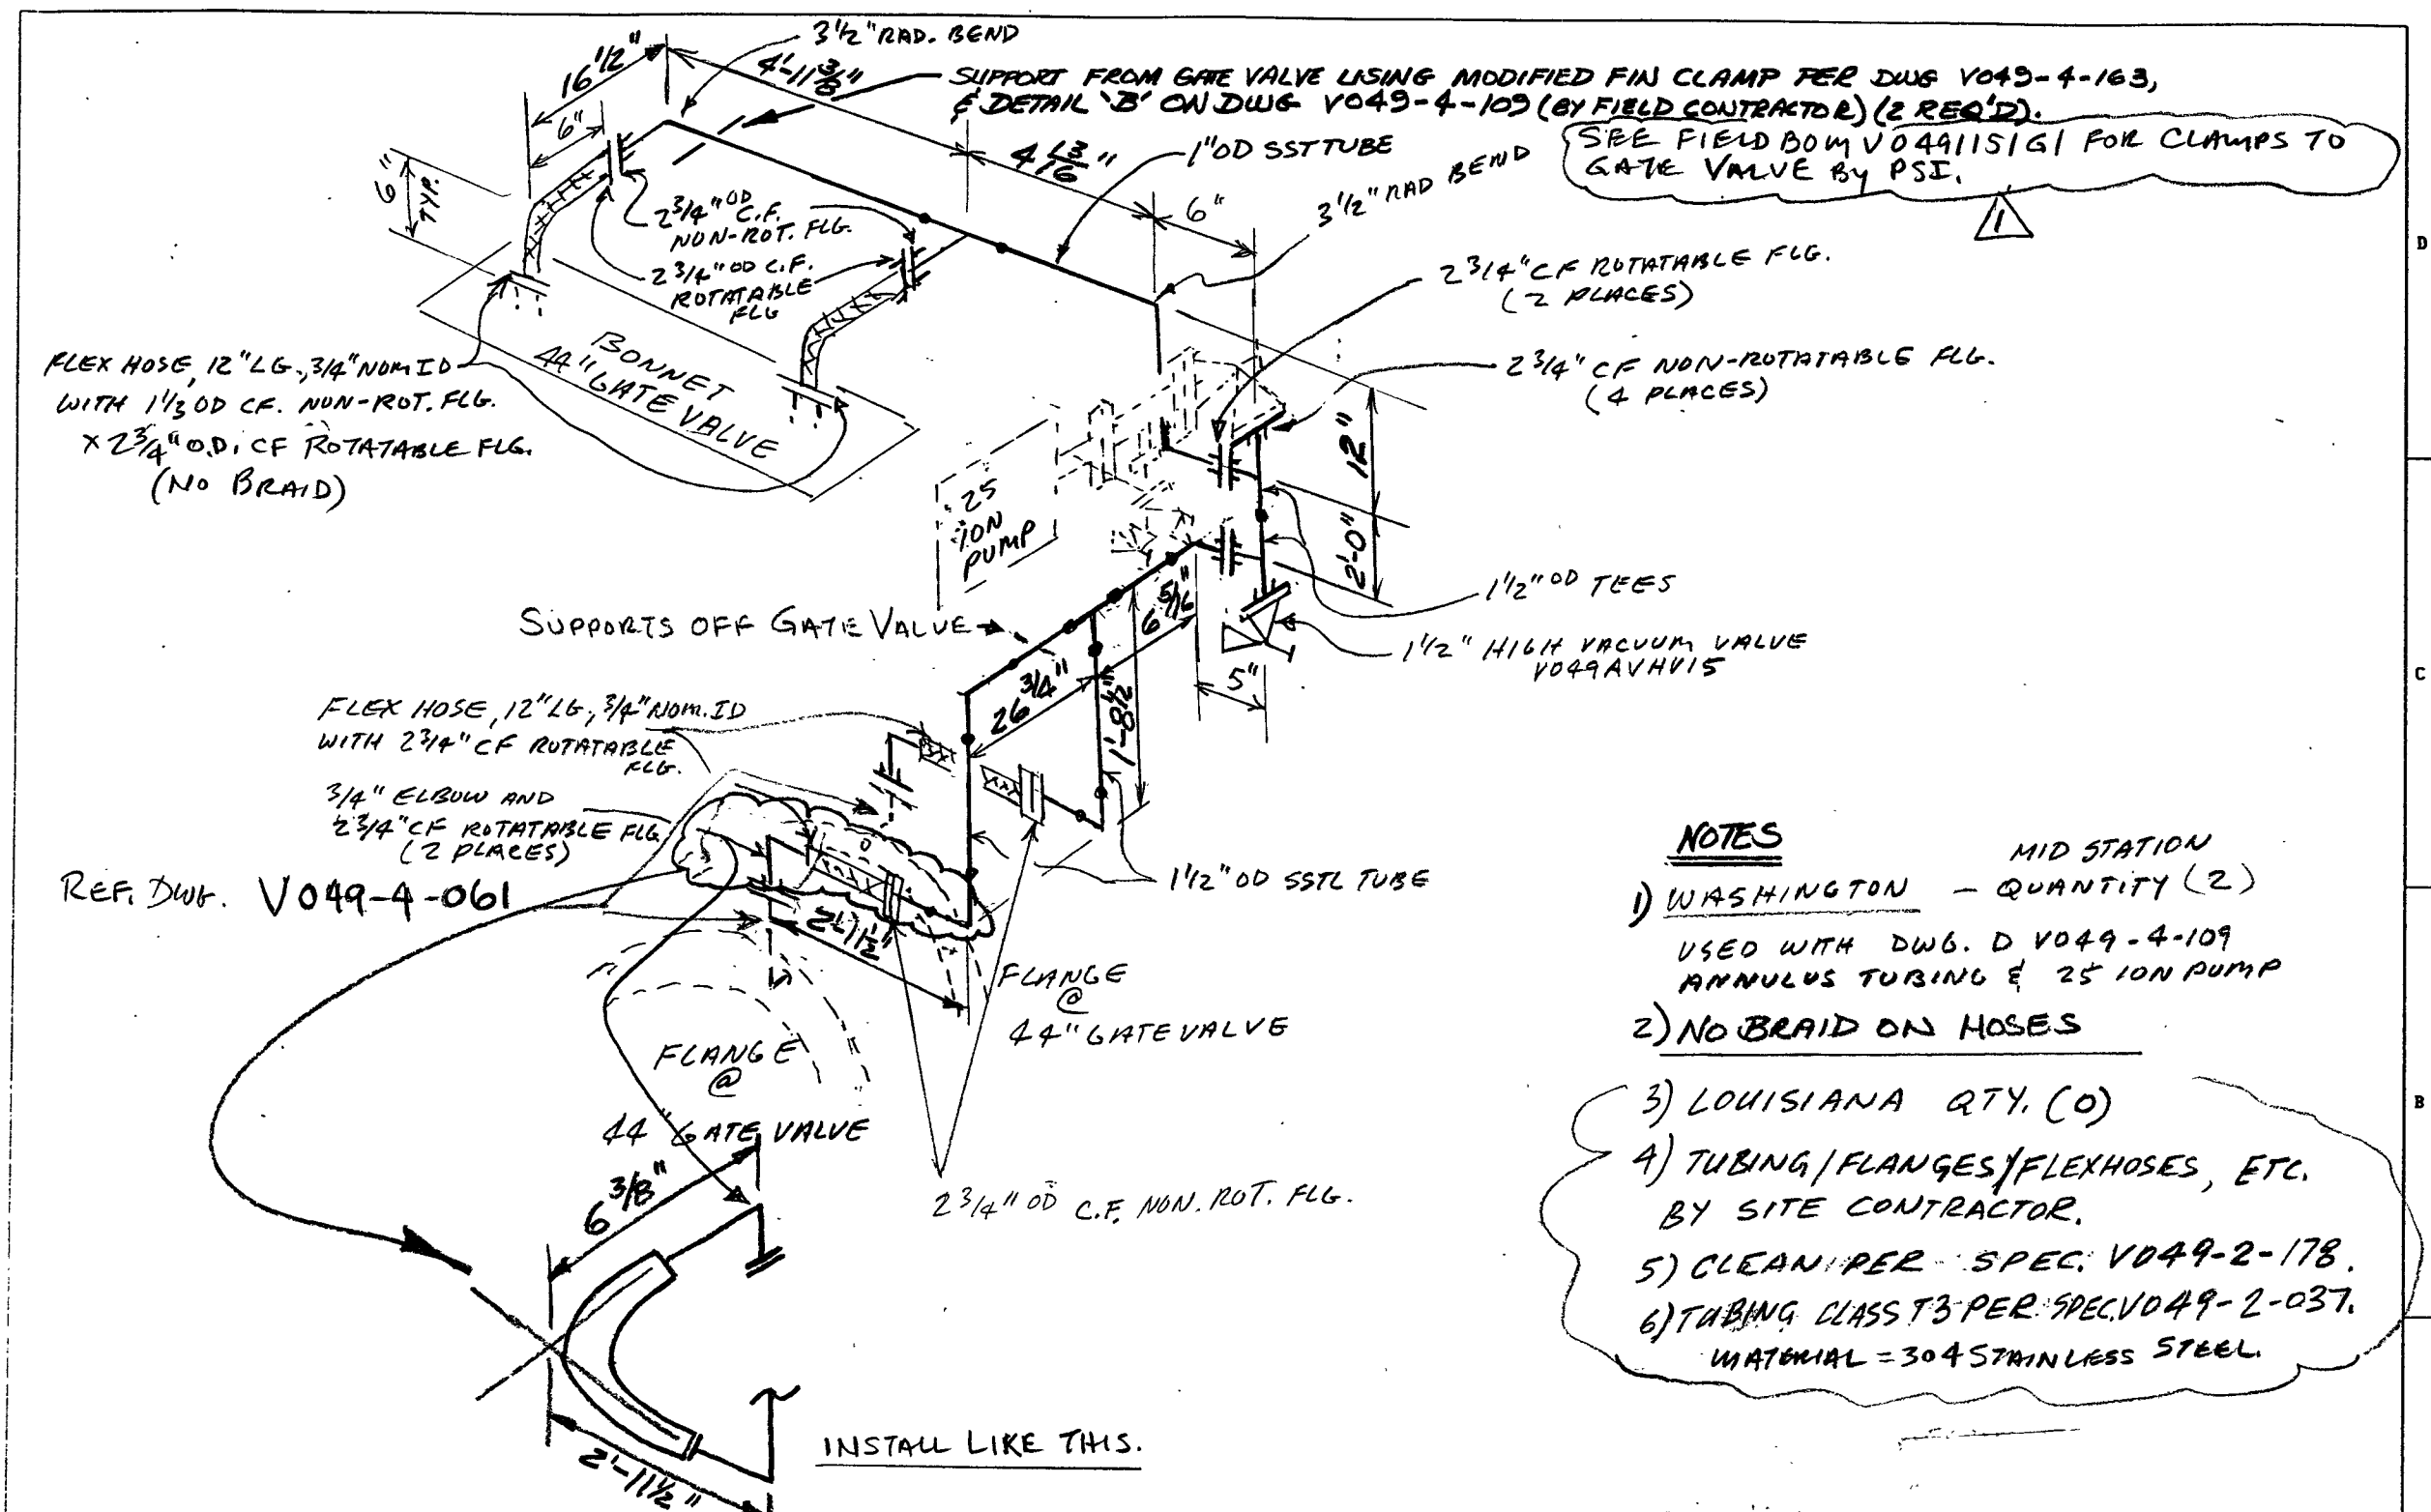 3 1/2" RAD. BEND
16 1/2"
4'-11 3/8"
SUPPORT FROM GATE VALVE USING MODIFIED FIN CLAMP PER DWG V049-4-163,
& DETAIL 'B' ON DWG V049-4-109 (BY FIELD CONTRACTOR) (2 REQ'D).
SEE FIELD BOM V0491151G1 FOR CLAMPS TO
GATE VALVE BY PSI.
1
6"
6"
TYP.
4 13/16"
1" OD SST TUBE
6"
3 1/2" RAD BEND
D
2 3/4" OD
C.F.
NON-ROT. FLG.
2 3/4" OD C.F.
ROTATABLE
FLG
2 3/4" CF ROTATABLE FLG.
(2 PLACES)
2 3/4" CF NON-ROTATABLE FLG.
(4 PLACES)
FLEX HOSE, 12" LG., 3/4" NOM ID
WITH 1 1/3 OD CF. NON-ROT. FLG.
X 2 3/4" O.D. CF ROTATABLE FLG.
(NO BRAID)
BONNET
44" GATE VALVE
25
ION
PUMP
12"
2'-0"
1 1/2" OD TEES
SUPPORTS OFF GATE VALVE
6 5/16"
1 1/2" HIGH VACUUM VALVE
V049AVHV15
5"
C
26 3/4"
1'-8 1/2"
FLEX HOSE, 12" LG, 3/4" NOM. ID
WITH 2 3/4" CF ROTATABLE
FLG.
3/4" ELBOW AND
2 3/4" CF ROTATABLE FLG
(2 PLACES)
REF. DWG. V049-4-061
2'-11 1/2"
1 1/2" OD SSTL TUBE
FLANGE
@
44" GATE VALVE
FLANGE
@
44" GATE VALVE
2 3/4" OD C.F. NON. ROT. FLG.
6 3/8"
2'-11 1/2"
INSTALL LIKE THIS.
NOTES
MID STATION
1) WASHINGTON - QUANTITY (2)
USED WITH DWG. D V049-4-109
ANNULUS TUBING & 25 ION PUMP
2) NO BRAID ON HOSES
3) LOUISIANA QTY. (0)
B
4) TUBING/FLANGES/FLEXHOSES, ETC.
BY SITE CONTRACTOR.
5) CLEAN PER SPEC. V049-2-178.
6) TUBING CLASS T3 PER SPEC. V049-2-037.
MATERIAL = 304 STAINLESS STEEL.